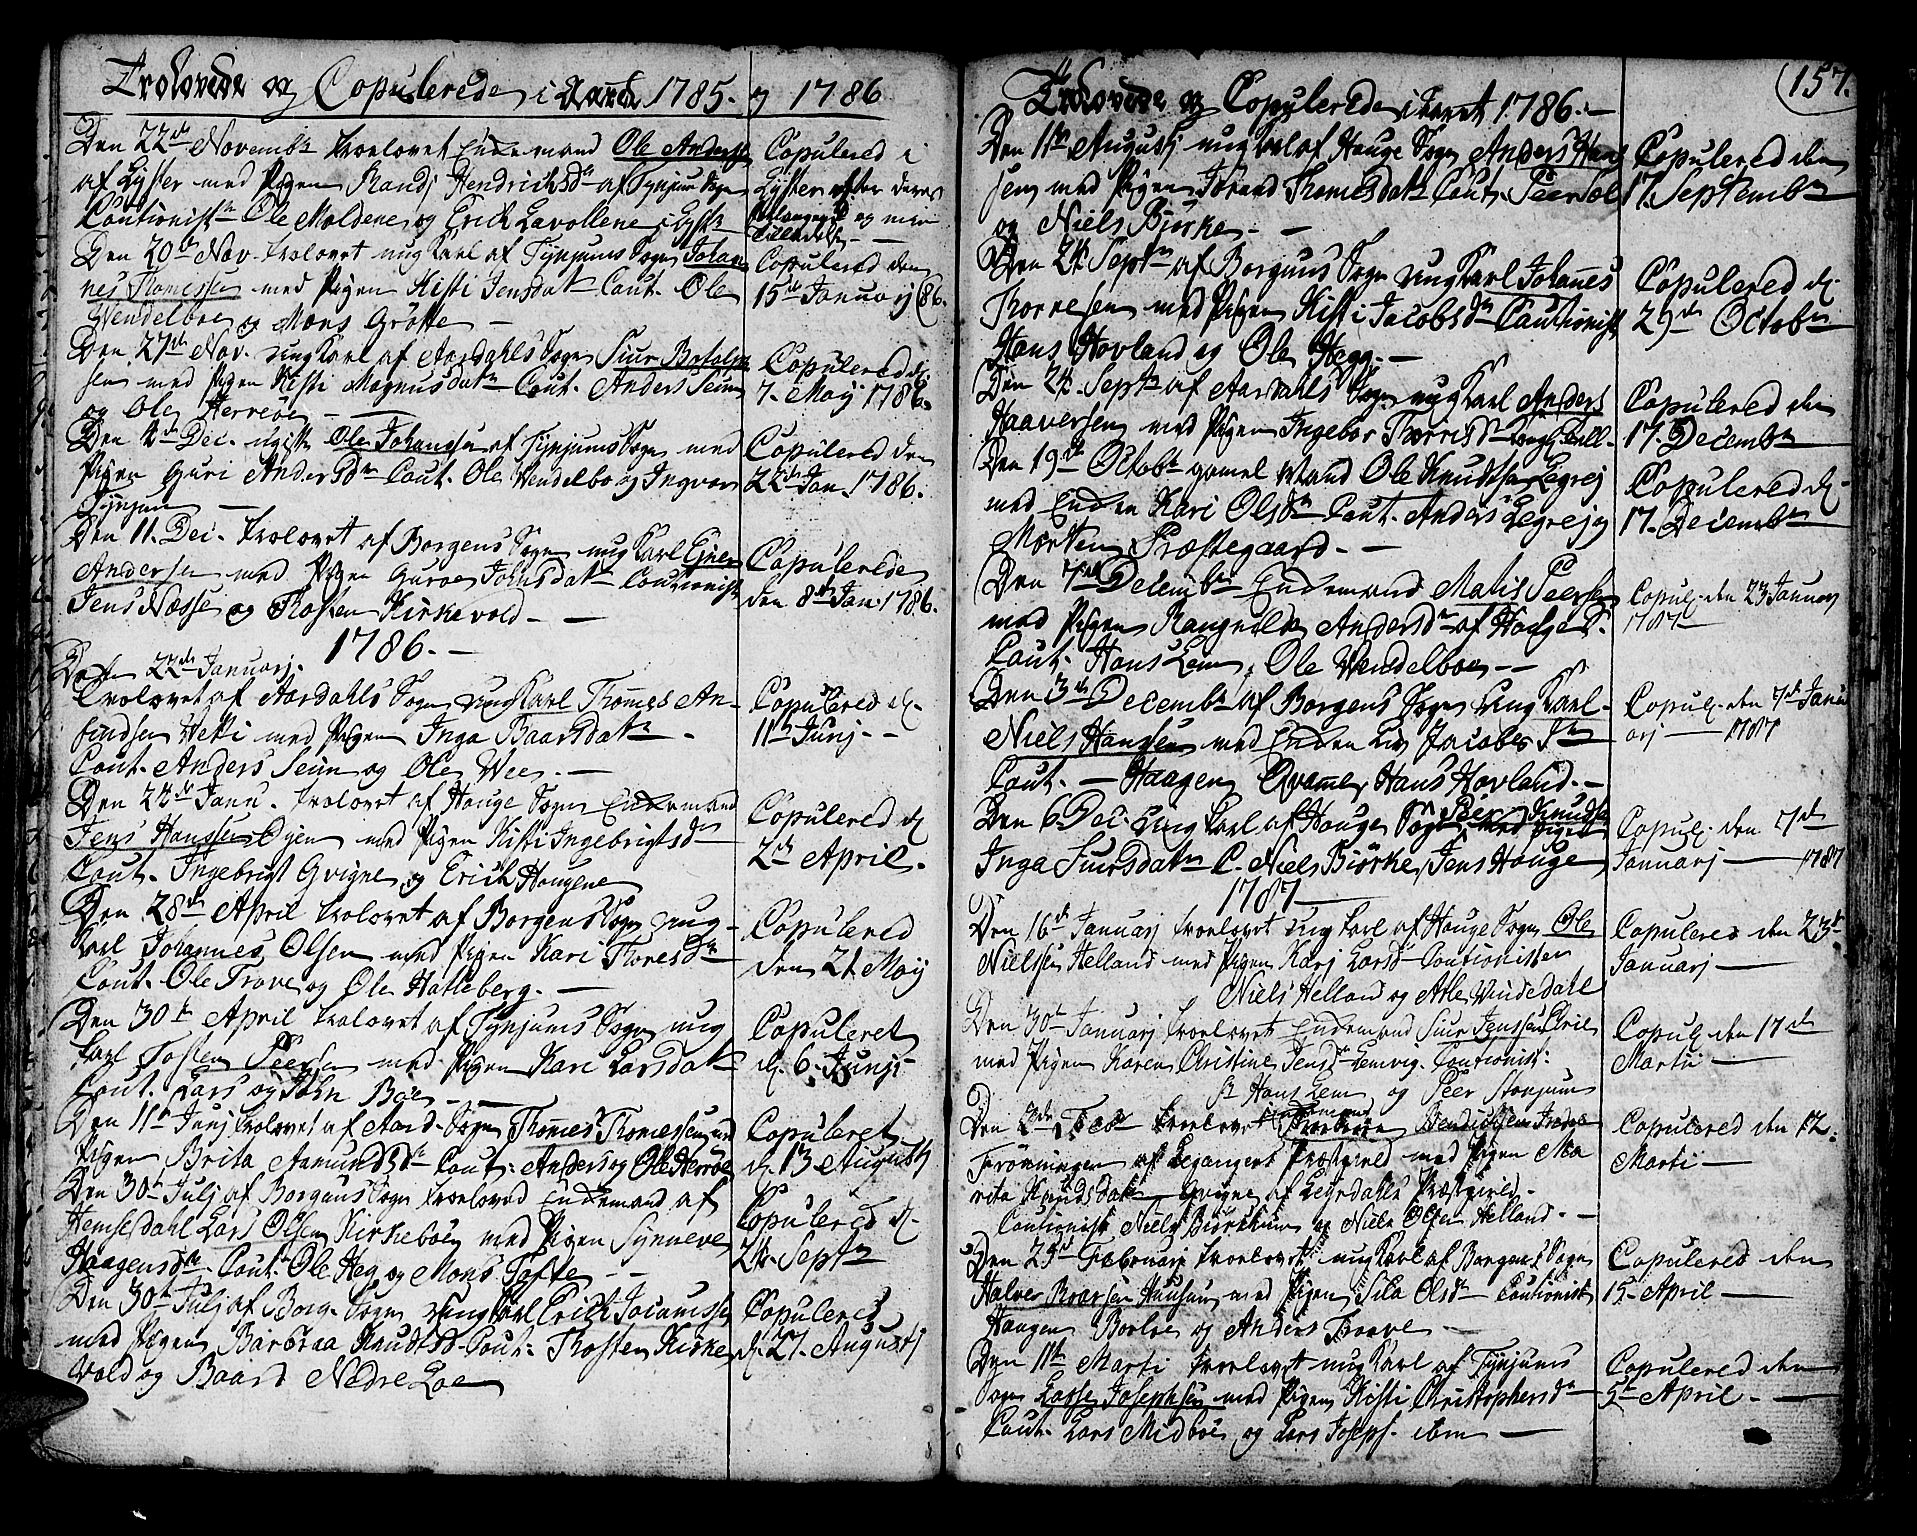 Trolovede og Copulerede i Aaret 1785. og 1786
Den 22de Novembr trolovet Enckemand Ole Anders
af Lyster med Pigen Randj Hendrichsdr af Tynjum Sogn
Cautionistr Ole Moldene og Erich Lavollene i Lystr
Copulered i
Lyster efter deres
og min
Den 20de Nov. trolovet ung Karl af Tynjums Sogn Johan
nes Thomessen med Pigen Kisti Jensdatr Caut. Ole
Wendelboe og Mons Grötte
Copulered den
15de Januarj 86.
Den 27de Nov. ung Karl af Aardahls Sogn Siur Botolp
sen med Pigen Kisti Magnusdatr Caut. Anders Seim
og Ole Herreöe
Copulered d.
7. Maij 1786.
Den 4de Dec. ugift Ole Johansen af Tynjums Sogn med
Pigen Guri Andersdr Caut. Ole Wendelbo og Ingvor
Tynjum
Copulered den
22de Jan. 1786.
Den 11. Dec. trolovet af Borgens Sogn ung Karl Ejner
Andersen med Pigen Guroe Johnsdatr Cautionistr
Jens Næsse og Thosten Kirkevold
Copulerede
den 8de Jan. 1786.
1786.
Den 22de Januarj.
trolovet af Aardahls Sogn ung Karl Thomes An-
findsen Vetti med Pigen Inga Baarsdatr
Caut. Anders Seim og Ole Wee
Copulered d.
11te Junj
Den 22de Janu. trolovet af Houge Sogn Enckemand
Jens Hanssen Öyen med Pigen Kisti Ingebrigtsdr
Caut. Ingebrigt Gvigne og Erich Hougene
Copulered d.
2de April.
Den 28de April trolovet af Borgens Sogn ung
Karl Johannes Olsen med Pigen Kari Thoresdr
Caut. Ole Trave og Ole Hatleberg.
Copulered
den 21 Maij
Den 30te April trolovet af Tynjums Sogn ung
Karl Tosten Peersen med Pigen Kari Larsdatr
Caut. Lars og John Böe
Copuleret
d. 6. Junj
Den 11te Junj trolovet af Aard. Sogn Thomes Thomessen med
Pigen Brita Aamundsdr Caut. Anders og Ole Herröe
Copuleret
d. 13 Augustj
Den 30te Julj af Borgens Sogn troeloved Enckemand af
Hemsedahl Lars Olsen Kirkeböen med Pigen Synneve
Haagensdr Caut. Ole Heg og Mons Tofte
Copulered d.
24. Septr
Den 30te Julj af Borg. Sogn ung Karl Erich Jocumsse
med Pigen Barbraa Knudtsd. Caut. Thosten Kirke
vold og Baard Nedre Loe
Copuleret
d. 27. Augustj
157.
Trolovede og Copulerede i Aaret 1786.
Den 11te Augustj ung Karl af Houge Sogn Anders Hans
sen med Pigen Thomesdatr Caut. Peer
og Niels Björke
Copulered den
17. Septembr
Den 24. Septr af Borguns Sogn ung Karl Johannes
Thoresen med Pigen Kisti Jacobsdr Cautionistr
Hans Hovland og Ole Hegg.
Copulered d.
29de Octobr
Den 24. Septr af Aardahls Sogn ung Karl Anders
Haaversen med Pigen Ingebor Thorrisdr
Copulered den
17. Decembr
Den 19de Octobr gamel Mand Ole Knudtsen Legrej
med Encken Kari Olsdr Caut. Anders Legrej og
Morten Præstegaard.
Copulered d.
17. Decembr
Den 7de Decembr Enckemand Matis Peersen
med Pigen Rangnilde Andersdr af Houge S.
Caut. Hans Lem, Ole Wendelboe
Copul. den 23 Januarj
1787
Den 3de Decembr af Borgens Sogn Ung Karl
Niels Hanssen med Encken Liv Jacobs dr
Caut. Haagen Qvame, Hans Hovland.
Copul. den 7de Janu
arj 1787
Den 6. Dec. Ung Karl af Houge Sogn Peer Knudtse med Pigen
Inga Siursdatr C. Niels Biörke, Jens Houge
Copul. den 7de
Januarj 1787
1787
Den 16de Januarj troelovet ung Karl af Houge Sogn Ole
Nielsen Helland med Pigen Karj Larsdr Cautionister
Niels Helland og Atle Vindedahl
Copulered den 23de
Januarj
Den 30te Januarj troelovet Enckemand Siur Jenssen
med Pigen Karen Christine Jensdr Lemvig. Cautionist:
Sr Hans Lem og Peer Stoejum
Copul. den 17de
Martii
Den 2den Feb troelovet Enckemand Bendichsen
Frönningen af Legangers Præstegield med Pigen Ma
rita Knudsdatr Gvigne af Leyrdahls Præstegield.
Cautionistr Niels Biörkum og Niels Olsen Helland.
Copulered den 12.
Marti
Den 25de Februarj troelovet ung Karl af Borgens Sogn
Halver Broersen Hausum med Pigen Sila Olsdr Cautionistr
Haagen Borlow og Anders Trave
Copulered den
15. April
Den 11te Marti troelovet ung Karl af Tynjums
Sogn Lasse Josephsen med Pigen Kisti Christophersdr
Caut. Lars Midböe og Lars Joseph. ibm
Copulered den
5te April